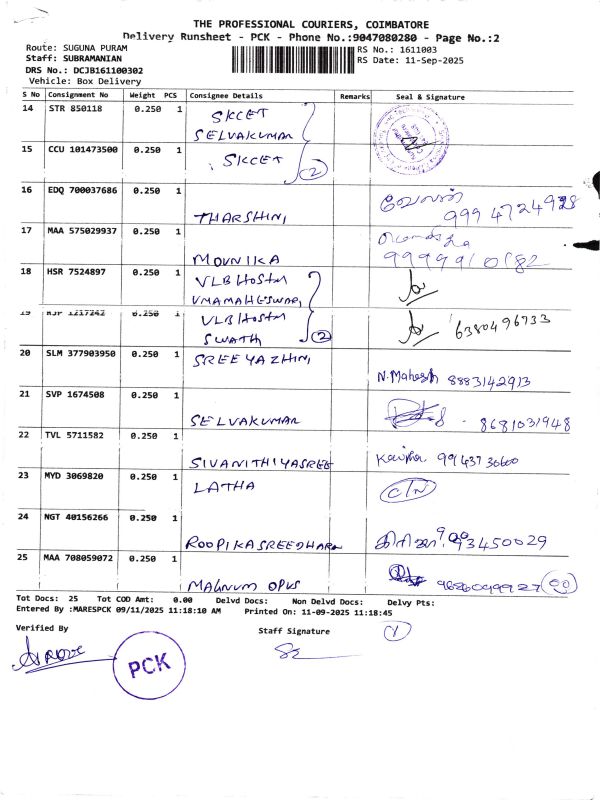 THE PROFESSIONAL COURIERS, COIMBATORE
Delivery Runsheet - PCK - Phone No.:9047080280 - Page No.:2
Route: SUGUNA PURAM
RS No.: 1611003
Staff: SUBRAMANIAN
RS Date: 11-Sep-2025
DRS No.: DCJB161100302
Vehicle: Box Delivery
S No Consignment No Weight PCS Consignee Details Remarks Seal & Signature
14 STR 850118 0.250 1 SKCET
SELVAKUMAR
15 CCU 101473500 0.250 1 SKCET
2
16 EDQ 700037686 0.250 1 THARSHINI வேலன்
9994724928
17 MAA 575029937 0.250 1 MOUNIKA
18 HSR 7524897 0.250 1 VLB Hostel
UMAMAHESWARI
19 0.250 1 VLB Hostel
SWATH 2 6380496733
20 SLM 377903950 0.250 1 SREEYAZHINI N.Mahesh 8883142913
21 SVP 1674508 0.250 1 SELVAKUMAR 8681031948
22 TVL 5711582 0.250 1 SIVANITHIYASREE 9943736600
23 MYD 3069820 0.250 1 LATHA C/N
24 NGT 40156266 0.250 1 ROOPIKASREEDHARAN
25 MAA 708059072 0.250 1 MAGNUM OPUS
Tot Docs: 25 Tot COD Amt: 0.00 Delvd Docs: Non Delvd Docs: Delvy Pts:
Entered By :MARESPCK 09/11/2025 11:18:10 AM Printed On: 11-09-2025 11:18:45
Verified By
Staff Signature
PCK